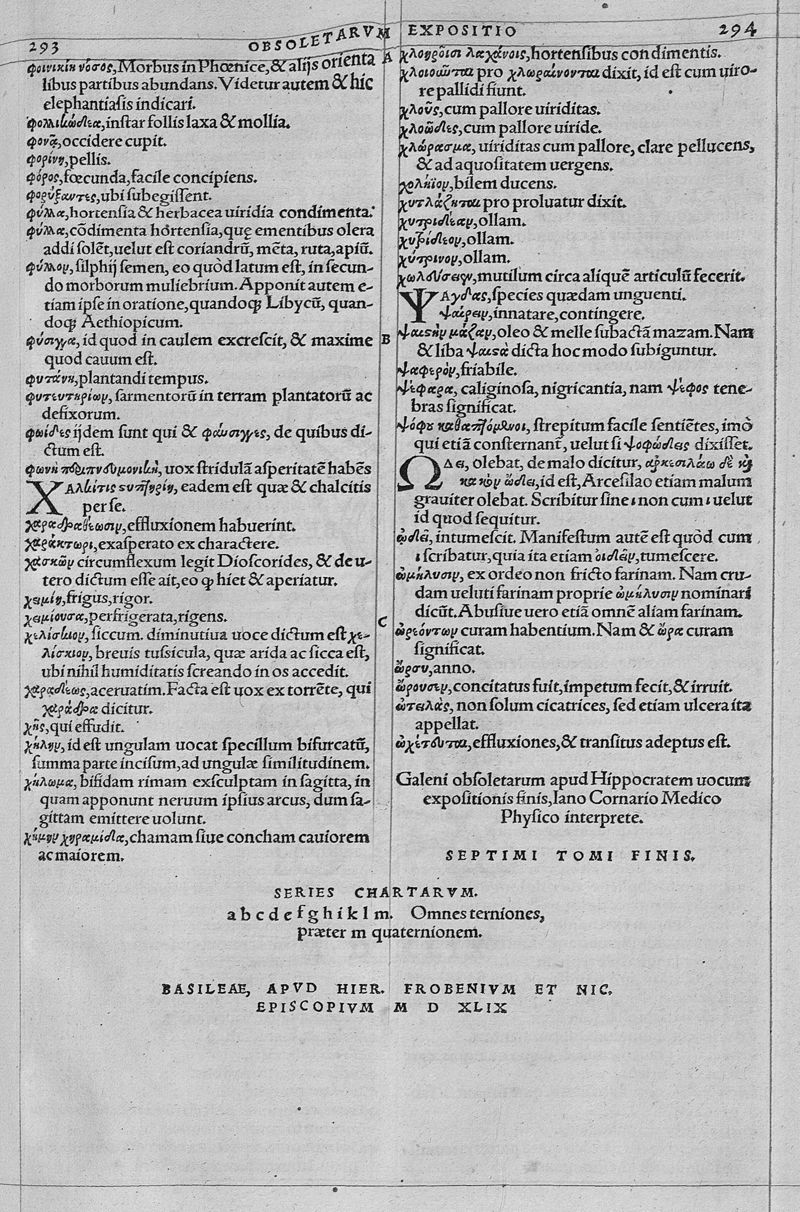 293
OBSOLETARVM
φοινικίη νόσος, Morbus in Phœnice, & alijs orienta
libus partibus abundans. Videtur autem & hic
elephantiasis indicari.
φολλικώδεα, instar follis laxa & mollia.
φονᾷ, occidere cupit.
φορίνη, pellis.
φόρος, fœcunda, facile concipiens.
φορύξαντες, ubi subegissent.
φύλλα, hortensia & herbacea uiridia condimenta.
φύλλα, cōdimenta hortensia, quę ementibus olera
addi solēt, uelut est coriandrū, mēta, ruta, apiū.
φύλλον, silphij semen, eo quòd latum est, in secun-
do morborum muliebrium. Apponit autem e-
tiam ipse in oratione, quandoq; Libycū, quan-
doq; Aethiopicum.
φύσιγγα, id quod in caulem excrescit, & maxime
quod cauum est.
φυτάνη, plantandi tempus.
φυτευτηρίων, sarmentorū in terram plantatorū ac
defixorum.
φωίδες ijdem sunt qui & φαύσιγγες, de quibus di-
ctum est.
φωνὴ uox stridulā asperitatē habēs
ΧΑλκῖτις στυπτηρίη, eadem est quæ & chalcitis
per se.
χαραδρωθέωσιν, effluxionem habuerint.
χαράκτωρι, exasperato ex charactere.
χασκῶν circumflexum legit Dioscorides, & de u-
tero dictum esse ait, eo q̨ hiet & aperiatur.
χειμίη, frigus, rigor.
χειμίουσα, perfrigerata, rigens.
χελίσκιον, siccum. diminutiua uoce dictum est χε-
λίσκιον, breuis tussicula, quæ arida ac sicca est,
ubi nihil humiditatis screando in os accedit.
χεραδέως, aceruatim. Facta est uox ex torrēte, qui
χαράδρα dicitur.
χῆς, qui effudit.
χηλὴν, id est ungulam uocat specillum bifurcatū,
summa parte incisum, ad ungulæ similitudinem.
χήλωμα, bifidam rimam exsculptam in sagitta, in
quam apponunt neruum ipsius arcus, dum sa-
gittam emittere uolunt.
χήμην χηραμίδα, chamam siue concham cauiorem
ac maiorem.
A
B
C
EXPOSITIO
294
χλουροῖσι λαχάνοις, hortensibus condimentis.
χλοιοῦνται pro χλωραίνονται dixit, id est cum uiro-
re pallidi fiunt.
χλοῦς, cum pallore uiriditas.
χλοῶδες, cum pallore uiride.
χλώρασμα, uiriditas cum pallore, clare pellucens,
& ad aquositatem uergens.
χοληϊον, bilem ducens.
χυτλάζηται pro proluatur dixit.
χυτριδέαν, ollam.
χυτρίδιον, ollam.
χύτρινον, ollam.
χωλεύσειν, mutilum circa aliquē articulū fecerit.
ΨΑγδας, species quædam unguenti.
ψαίρειν, innatare, contingere.
ψαιστὴν μᾶζαν, oleo & melle subactā mazam. Nam
& liba ψαιστὰ dicta hoc modo subiguntur.
ψαφερὸν, friabile.
ψεφαρα, caliginosa, nigricantia, nam ψέφος tene-
bras significat.
ψόφου strepitum facile sentiētes, imò
qui etiā consternant̄, uelut si ψοφώδεις dixisset.
ΩΔει, olebat, de malo dicitur, ἀρκεσιλάῳ δὲ καὶ
κακὸν ὦδει, id est, Arcesilao etiam malum
grauiter olebat. Scribitur sine ι non cum ι uelut
id quod sequitur.
ᾠδει, intumescit. Manifestum autē est quòd cum
ι scribatur, quia ita etiam οἰδεῖν, tumescere.
ὠμήλυσιν, ex ordeo non fricto farinam. Nam cru-
dam ueluti farinam proprie ὠμήλυσιν nominari
dicūt. Abusiue uero etiā omnē aliam farinam.
ὠρεόντων curam habentium. Nam & ὤρα curam
significat.
ὥρου, anno.
ὤρουσεν, concitatus fuit, impetum fecit, & irruit.
ὠτειλὰς, non solum cicatrices, sed etiam ulcera ita
appellat.
ὠχέτευται, effluxiones, & transitus adeptus est.
Galeni obsoletarum apud Hippocratem uocum
expositionis finis, Iano Cornario Medico
Physico interprete.
SEPTIMI TOMI FINIS.
SERIES CHARTARVM.
a b c d e f g h i k l m. Omnes terniones,
præter m quaternionem.
BASILEAE, APVD HIER. FROBENIVM ET NIC.
EPISCOPIVM M D XLIX